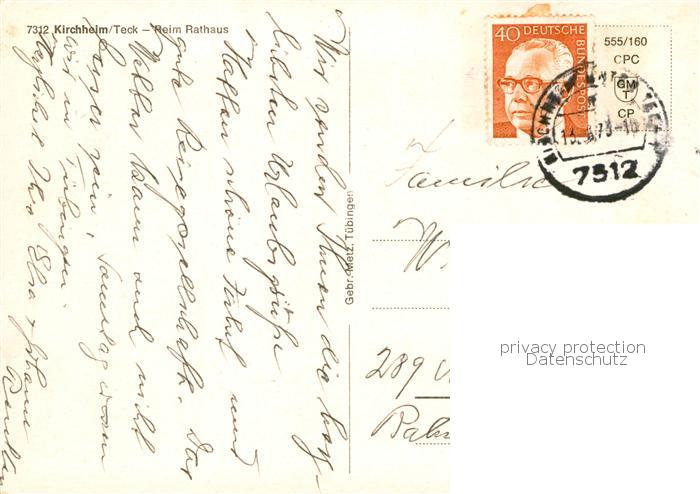 7312 Kirchheim/Teck – Beim Rathaus
Wir senden Ihnen die herz-
lichsten Urlaubsgrüße
Hatten schöne Fahrt und
gute Reisegesellschaft. Das
Wetter kann auch nicht
besser sein, Samstag waren
wir in Tübingen
Herzlichst Ihre Elsa +
Gebr. Metz, Tübingen
40
DEUTSCHE
BUNDESPOST
555/160
CPC
GM
T
CP
7312
Familie
W
289
privacy protection
Datenschutz